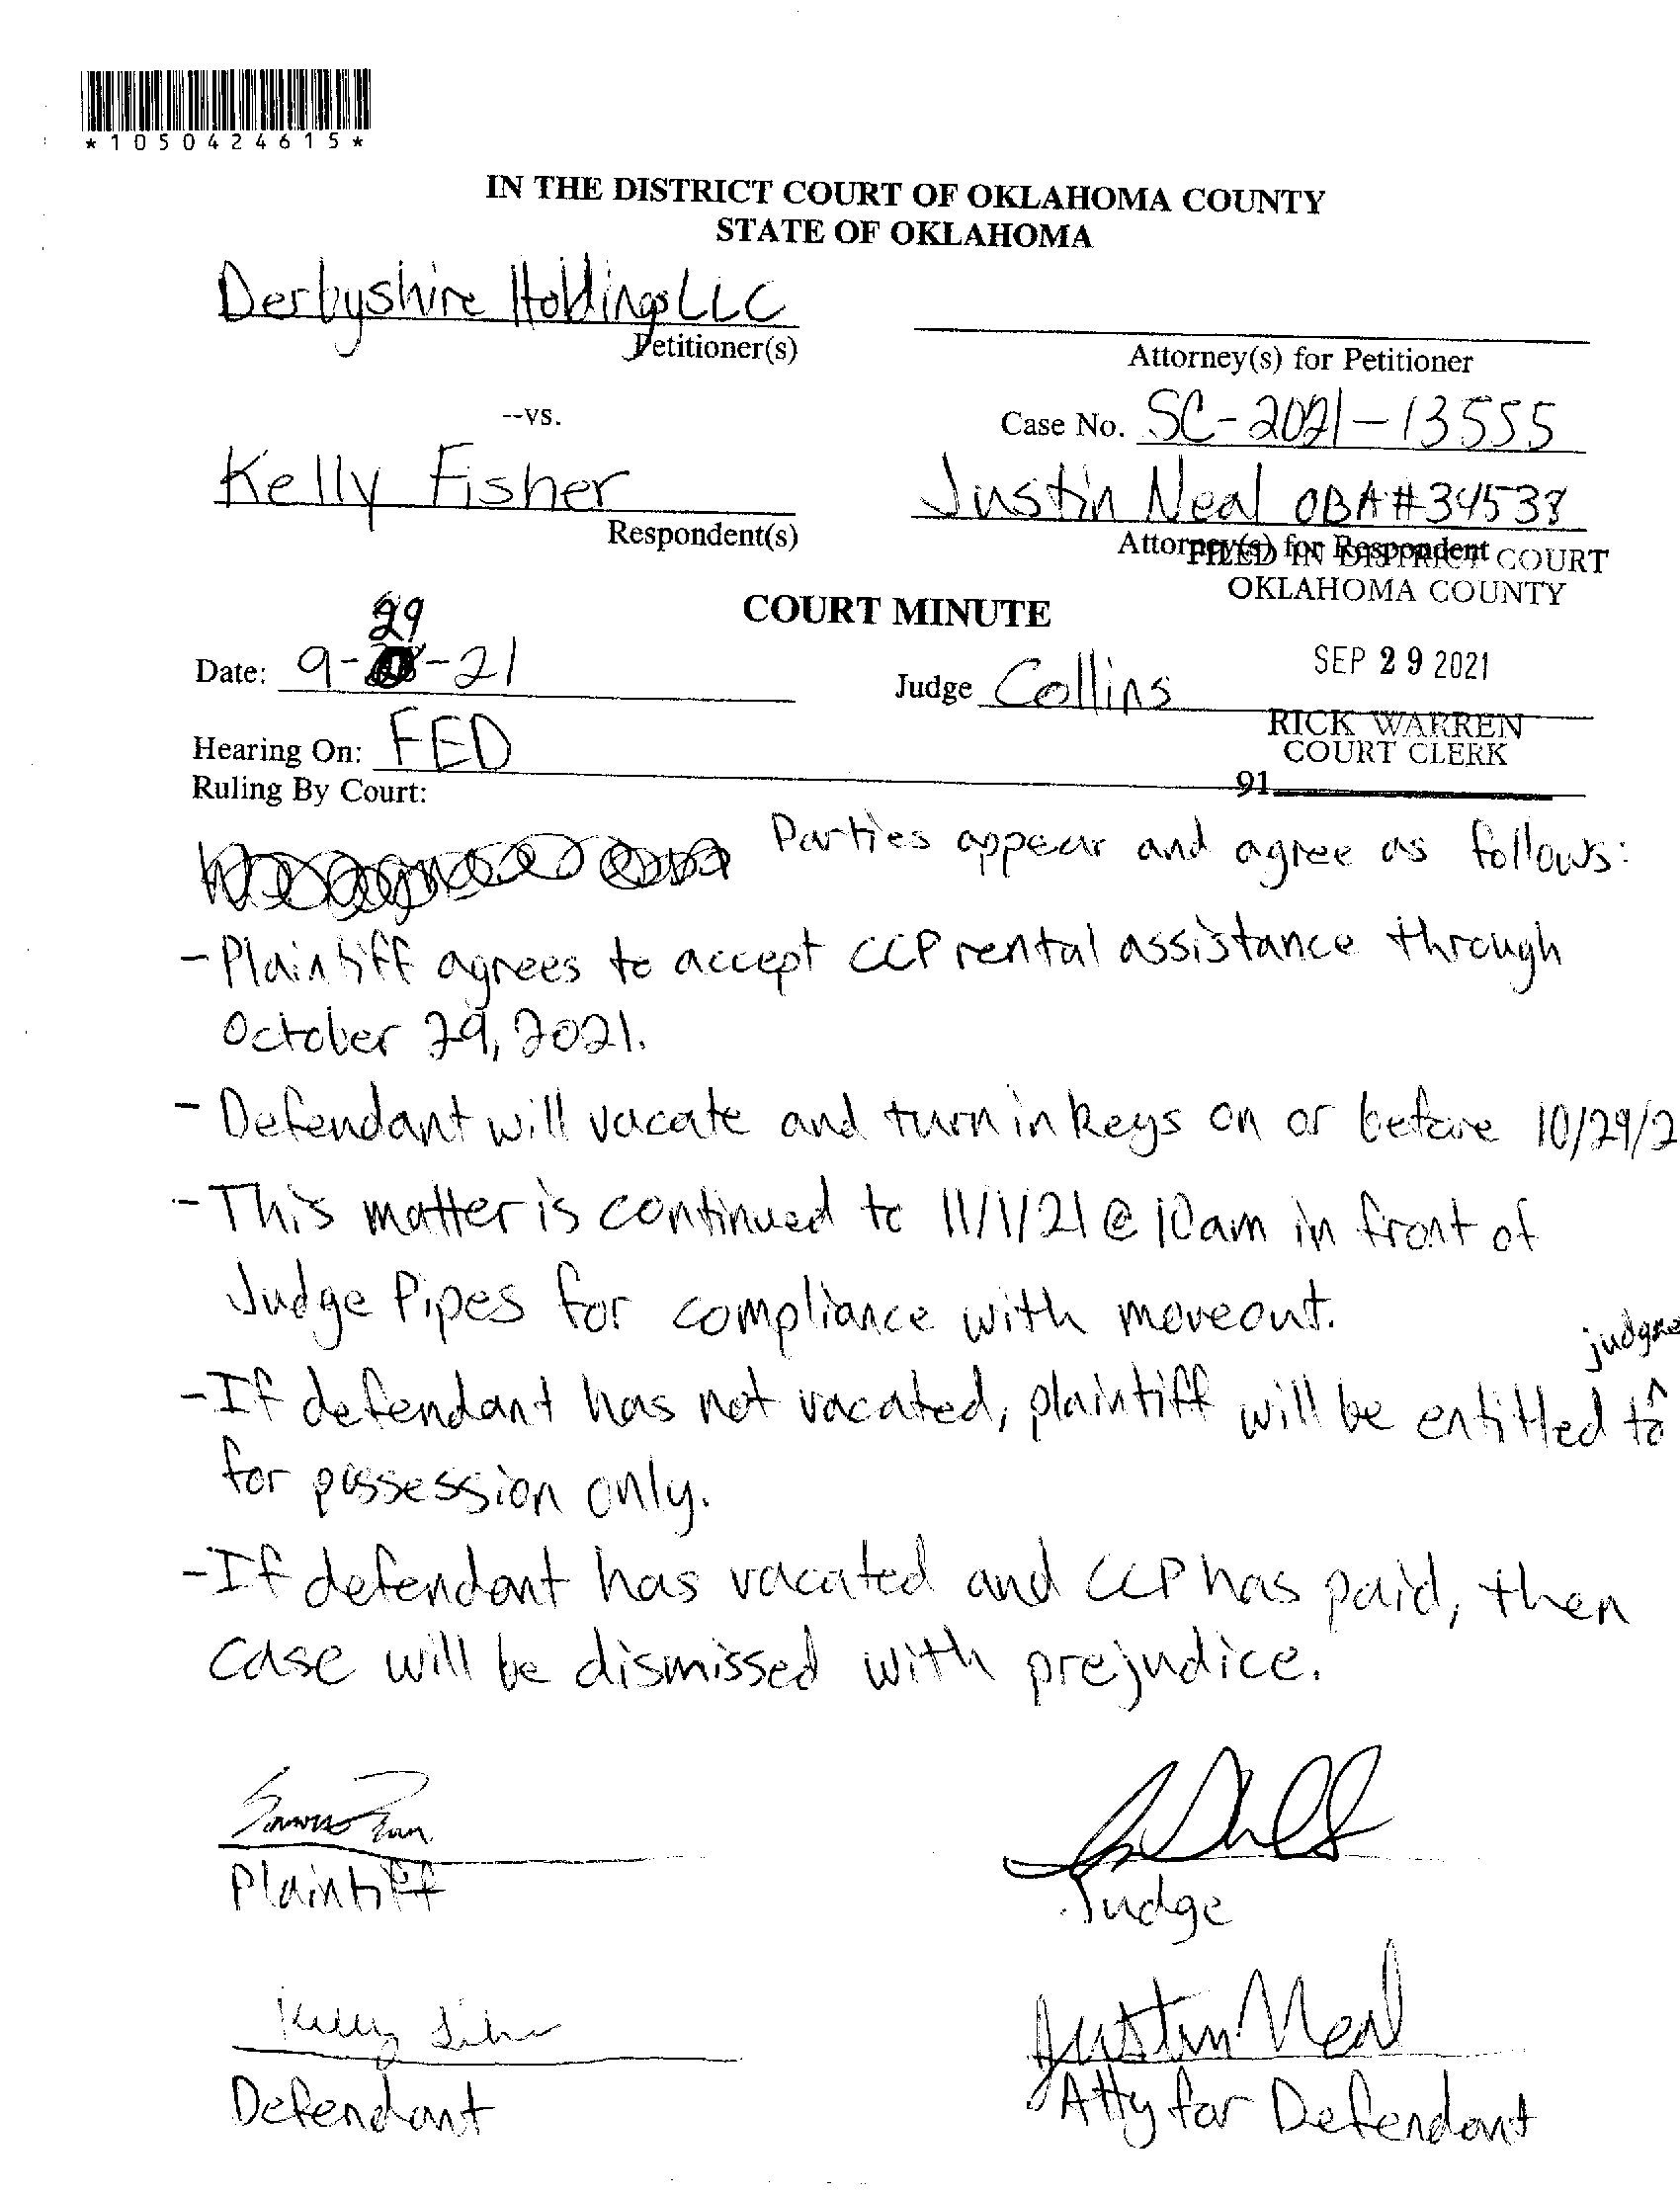 *1050424615*
IN THE DISTRICT COURT OF OKLAHOMA COUNTY
STATE OF OKLAHOMA
Derbyshire Holdings LLC
Petitioner(s)
Attorney(s) for Petitioner
--vs.
Case No. SC-2021-13555
Kelly Fisher
Respondent(s)
Justin Neal OBA#34538
Attorney(s) for Respondent
FILED IN DISTRICT COURT
OKLAHOMA COUNTY
COURT MINUTE
29
Date: 9- -21
Judge Collins
SEP 29 2021
RICK WARREN
COURT CLERK
Hearing On: FED
91
Ruling By Court:
Parties appear and agree as follows:
- Plaintiff agrees to accept CCP rental assistance through
October 29, 2021.
- Defendant will vacate and turn in keys on or before 10/29/2
- This matter is continued to 11/1/21 @ 10am in front of
Judge Pipes for compliance with moveout.
judgme
- If defendant has not vacated, plaintiff will be entitled to ^
for possession only.
- If defendant has vacated and CCP has paid, then
case will be dismissed with prejudice.
Plaintiff
Judge
Kelly Fisher
Defendant
Justin Neal
Atty for Defendant